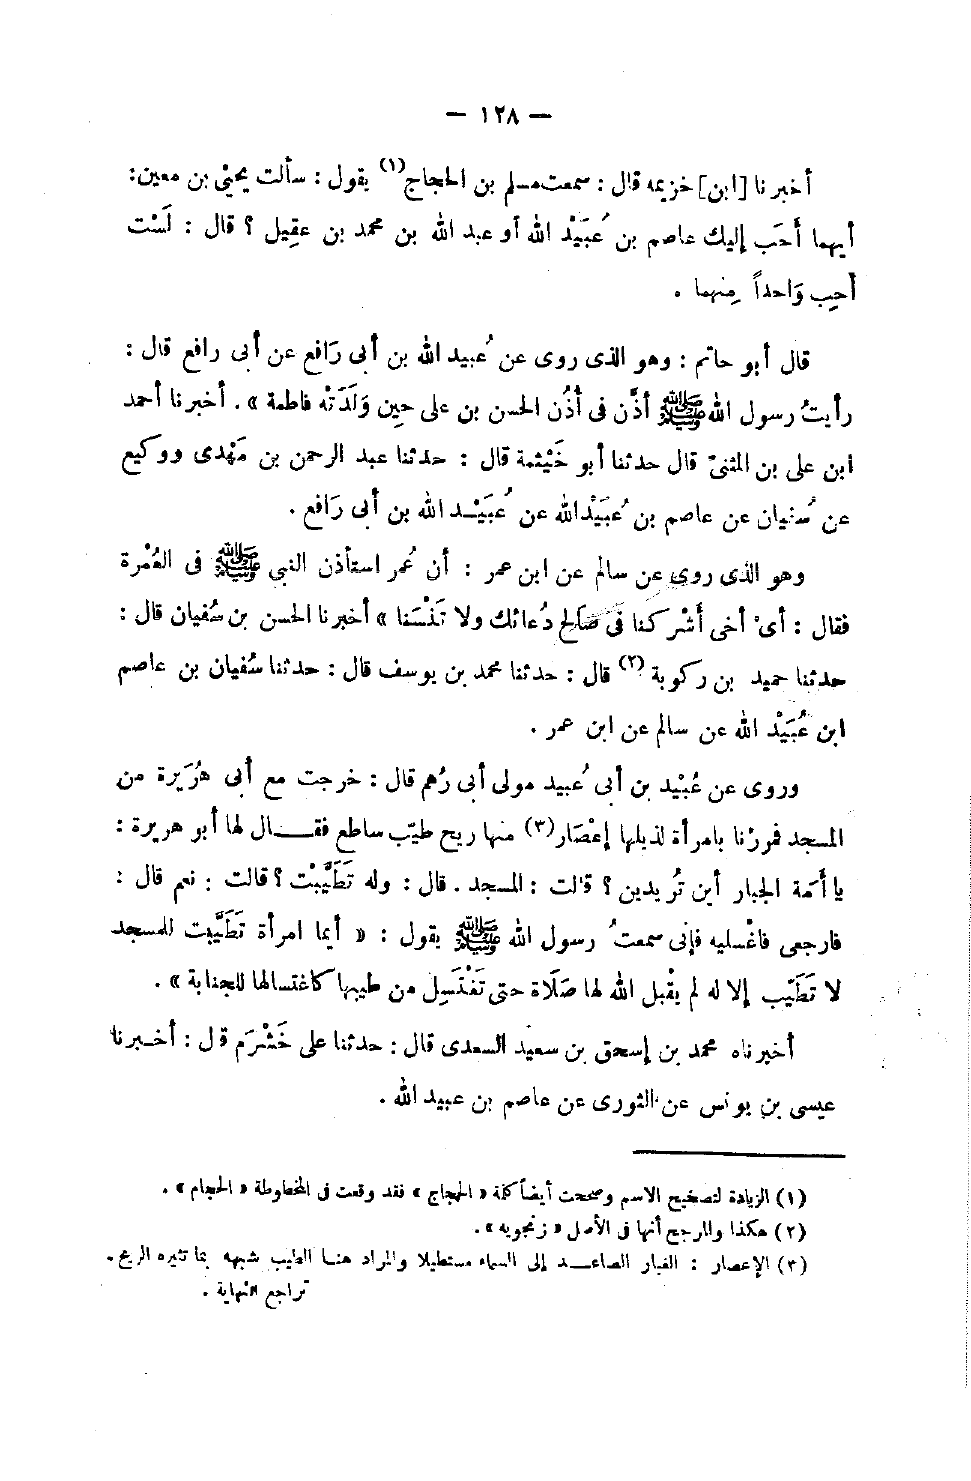 — ١٢٨ —
أخبرنا [ابن] خزيمه قال : سمعت مسلم بن الحجاج(١) يقول : سألت يحيى بن معين:
أيهما أَحَب إليك عاصم بن عُبَيْد الله أو عبد الله بن محمد بن عقِيل ؟ قال : لَسْت
أحِب وَاحداً مِنهما .
قال أبو حاتم : وهو الذى روى عن عُبيد الله بن أبى رَافع عن أبى رافع قال :
رأيتُ رسول الله ﷺ أذَّن فى أذُن الحسن بن على حِين وَلَدَتْه فاطمة » . أخبرنا أحمد
ابن على بن المثنىّ قال حدثنا أبو خَيْثمة قال : حدثنا عبد الرحمن بن مَهْدى ووكيع
عن سُفيان عن عاصم بن عُبَيْدالله عن عُبَيْد الله بن أبى رَافع .
وهو الذى روى عن سالم عن ابن عمر : أن عُمر استأذن النبي ﷺ فى العُمْرة
فقال : أىْ أخى أَشْركنا فى صَالح دُعائك ولا تَنْسَنا » أخبرنا الحسن بن سُفيان قال :
حدثنا حميد بن ركوبة (٢) قال : حدثنا محمد بن يوسف قال : حدثنا سُفيان بن عاصم
ابن عُبَيْد الله عن سالم عن ابن عمر .
وروى عن عُبْيد بن أبى عُبيد مولى أبى رُهم قال : خرجت مع أبى هُرَيرة من
المسجد فمررْنا بامرأة لذيلها إعْصَار(٣) منها ريح طيّب ساطع فقــال لها أبو هريرة :
يا أَمَة الجبار أين تُريدين ؟ قالت : المسجد . قال : وله تَطَيَّبْت ؟ قالت : نعم قال :
فارجعى فاغْسليه فإنى سمعتُ رسول الله ﷺ يقول : « أيما امرأة تَطَيَّبت للمسجد
لا تَطَيّب إلا له لم يقْبل الله لها صَلَاة حتى تَغْتَسِل من طيبها كاغتسالها للجنابة » .
أخبرناه محمد بن إسحق بن سعيد السعدى قال : حدثنا على خَشْرَم قال : أخـبرنا
عيسى بن يونس عن الثورى عن عاصم بن عبيد الله .
(١) الزيادة لتصحيح الاسم وصححت أيضاً كلمة « الحجاج » فقد وقعت فى المخطوطة « الحجام » .
(٢) هكذا والمرجح أنها فى الأصل « زنجويه » .
(٣) الإعصار : الغبار الصاعــد إلى السماء مستطيلا والمراد هنـا الطيب شبهه بما تثيره الريح .
تراجع النهاية .